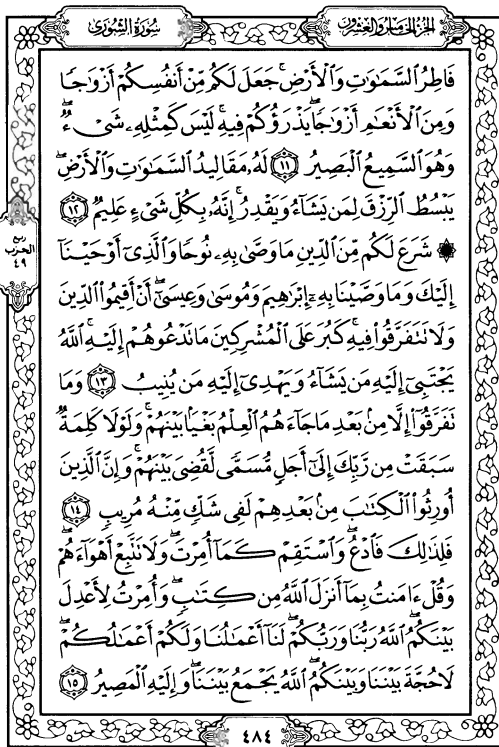 سُورَةُ الشُّورَىٰ
الجُزْءُ الخَامِسُ وَالعِشْرُونَ
فَاطِرُ السَّمَٰوَٰتِ وَالْأَرْضِ ۚ جَعَلَ لَكُم مِّنْ أَنفُسِكُمْ أَزْوَٰجًا
وَمِنَ الْأَنْعَٰمِ أَزْوَٰجًا ۖ يَذْرَؤُكُمْ فِيهِ ۚ لَيْسَ كَمِثْلِهِۦ شَىْءٌ ۖ
وَهُوَ السَّمِيعُ الْبَصِيرُ ١١ لَهُۥ مَقَالِيدُ السَّمَٰوَٰتِ وَالْأَرْضِ ۖ
يَبْسُطُ الرِّزْقَ لِمَن يَشَآءُ وَيَقْدِرُ ۚ إِنَّهُۥ بِكُلِّ شَىْءٍ عَلِيمٌ ١٢
۞ شَرَعَ لَكُم مِّنَ الدِّينِ مَا وَصَّىٰ بِهِۦ نُوحًا وَالَّذِىٓ أَوْحَيْنَآ
إِلَيْكَ وَمَا وَصَّيْنَا بِهِۦٓ إِبْرَٰهِيمَ وَمُوسَىٰ وَعِيسَىٰٓ ۖ أَنْ أَقِيمُوا۟ الدِّينَ
وَلَا تَتَفَرَّقُوا۟ فِيهِ ۚ كَبُرَ عَلَى الْمُشْرِكِينَ مَا تَدْعُوهُمْ إِلَيْهِ ۚ اللَّهُ
يَجْتَبِىٓ إِلَيْهِ مَن يَشَآءُ وَيَهْدِىٓ إِلَيْهِ مَن يُنِيبُ ١٣ وَمَا
تَفَرَّقُوٓا۟ إِلَّا مِنۢ بَعْدِ مَا جَآءَهُمُ الْعِلْمُ بَغْيًۢا بَيْنَهُمْ ۚ وَلَوْلَا كَلِمَةٌ
سَبَقَتْ مِن رَّبِّكَ إِلَىٰٓ أَجَلٍ مُّسَمًّى لَّقُضِىَ بَيْنَهُمْ ۚ وَإِنَّ الَّذِينَ
أُورِثُوا۟ الْكِتَٰبَ مِنۢ بَعْدِهِمْ لَفِى شَكٍّ مِّنْهُ مُرِيبٍ ١٤
فَلِذَٰلِكَ فَادْعُ ۖ وَاسْتَقِمْ كَمَآ أُمِرْتَ ۖ وَلَا تَتَّبِعْ أَهْوَآءَهُمْ ۖ
وَقُلْ ءَامَنتُ بِمَآ أَنزَلَ اللَّهُ مِن كِتَٰبٍ ۖ وَأُمِرْتُ لِأَعْدِلَ
بَيْنَكُمُ ۖ اللَّهُ رَبُّنَا وَرَبُّكُمْ ۖ لَنَآ أَعْمَٰلُنَا وَلَكُمْ أَعْمَٰلُكُمْ ۖ
لَا حُجَّةَ بَيْنَنَا وَبَيْنَكُمُ ۖ اللَّهُ يَجْمَعُ بَيْنَنَا ۖ وَإِلَيْهِ الْمَصِيرُ ١٥
ربع
الحزب
٤٩
٤٨٤